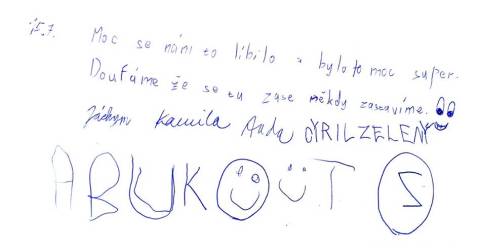 15.7. Moc se nám to líbilo a bylo to moc super.
Doufáme že se tu zase někdy zastavíme.
Jáchym Kamila Anda CYRILZELENÝ
ABUKOÜT S